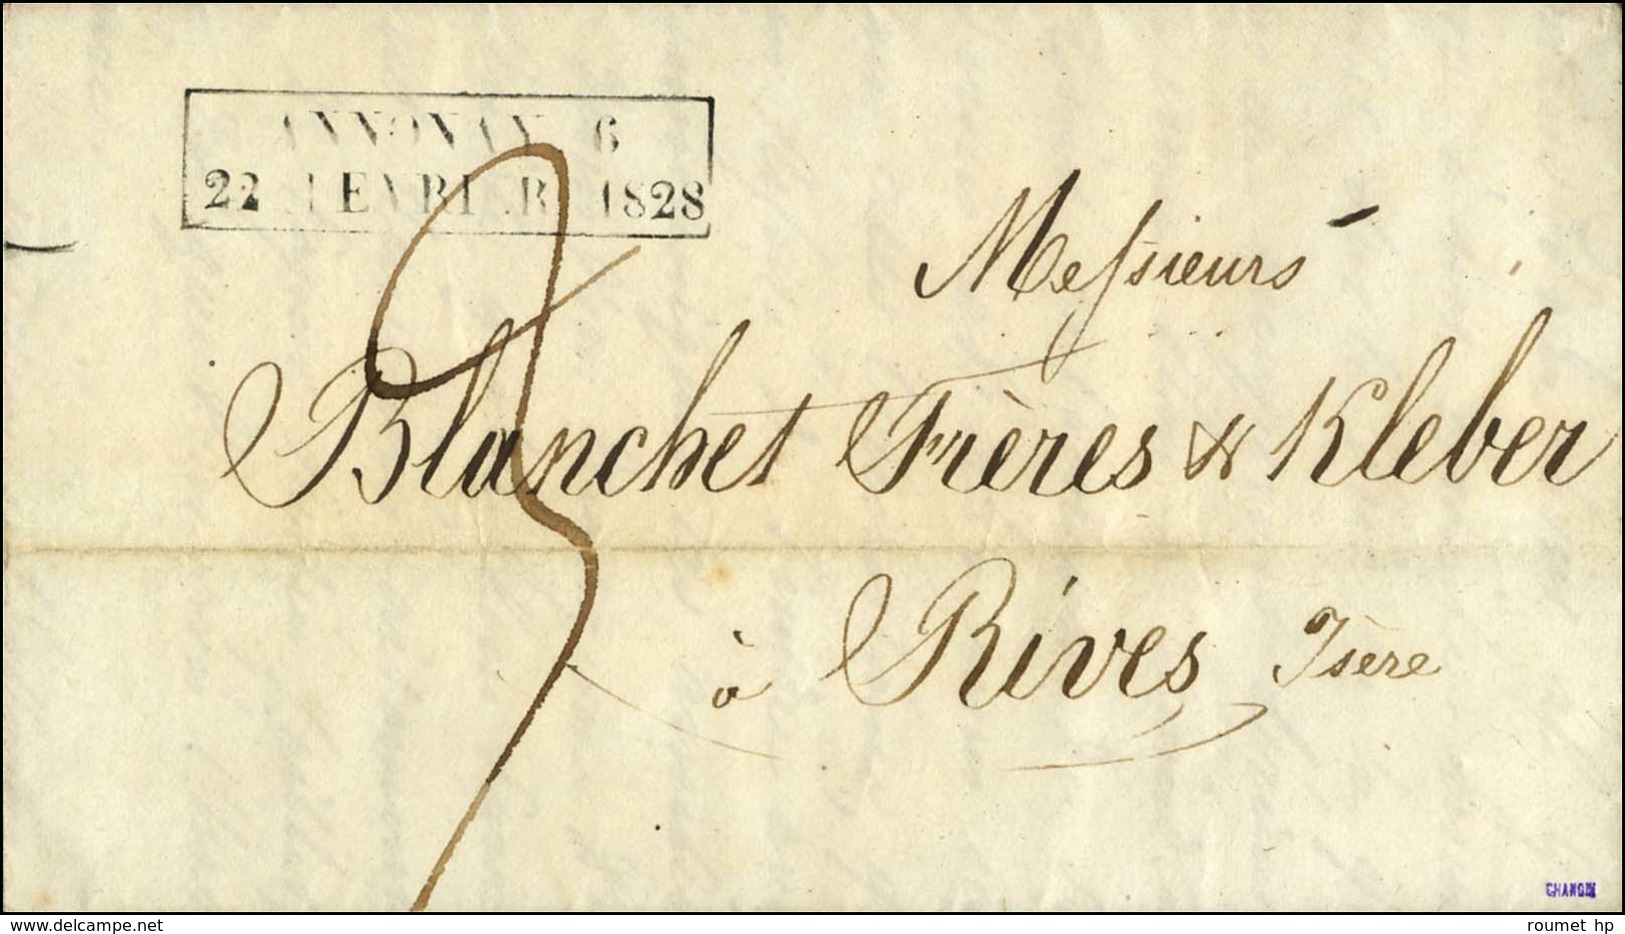 ANNONAY 6
22 FEVRIER 1828
Messieurs
Blanchet Frères & Kleber
à Rives Isère
3
www.delcampe.net
roumet hp